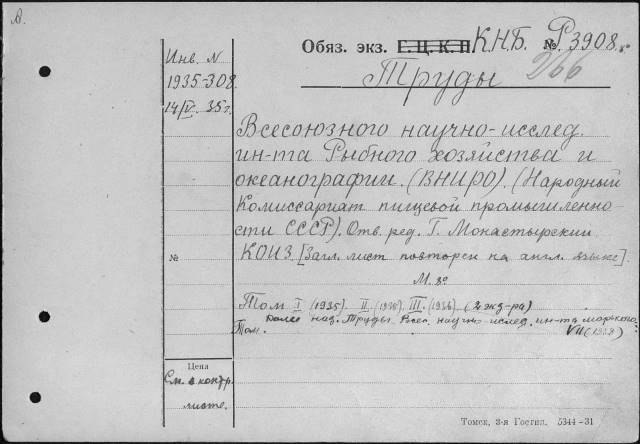 А.
Обяз. экз. Г.Ц.К.П К.Н.Б. № Р3908.
266
Труды
Инв. N
1935-308.
14/V 35г.
Всесоюзного научно-исслед.
ин-та Рыбного хозяйства и
океанографии. (ВНИРО). (Народный
Комиссариат пищевой промышленно-
сти СССР). Отв. ред. Г. Монастырский
№ КОИЗ. [Загл. лист повторен на англ. языке].
М. 8º
Том I (1935). II. (1936). III. (1936). (2 экз-ра)
Далее наз. Труды Всес. научно-исслед. ин-та
Том. VII (1938)
Цена
См. в контр.
листе.
Томск, 3-я Гостип. 5344—31